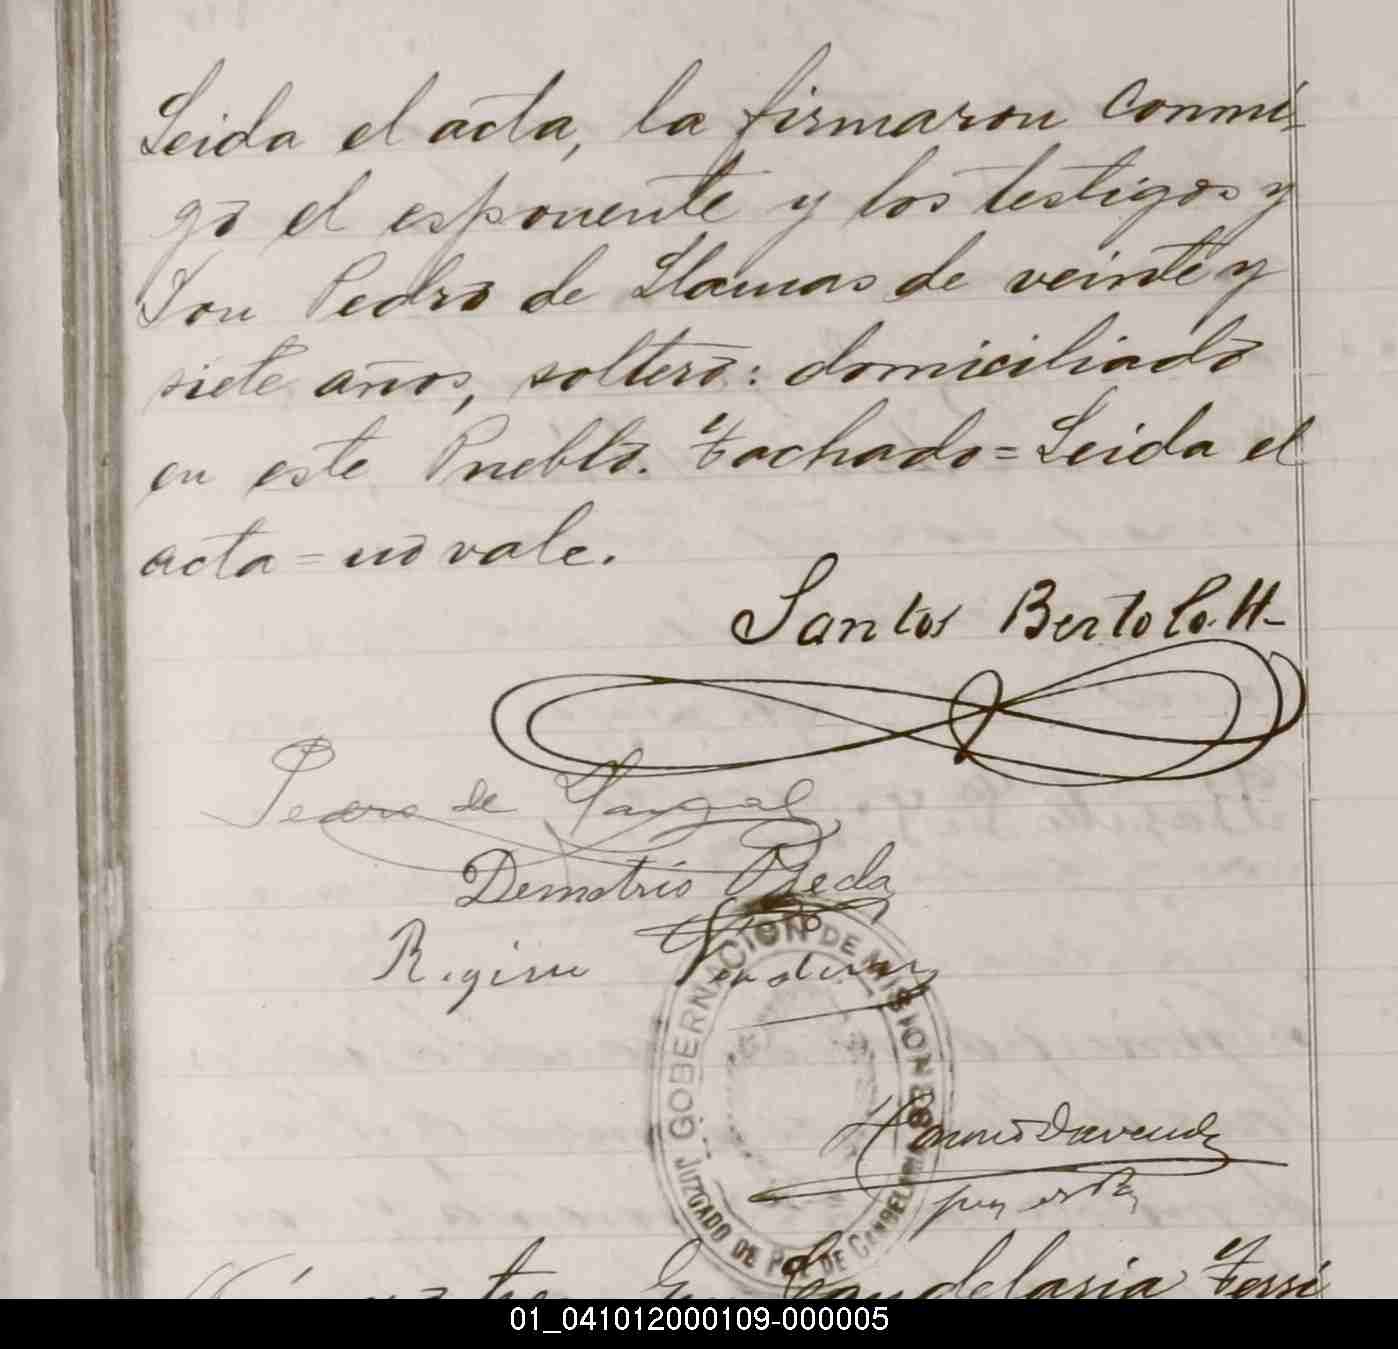 Leida el acta, la firmaron conmi-
go el esponente y los testigos y
Don Pedro de Llamas de veinte y
siete años, soltero: domiciliado
en este Pueblo. Tachado = Leida el
acta = no vale.
Santos Bertolotti
Pedro de
Demetrio Ojeda
GOBERNACION DE MISIONES
JUZGADO DE PAZ DE CANDELARIA
Candelaria
01_041012000109-000005